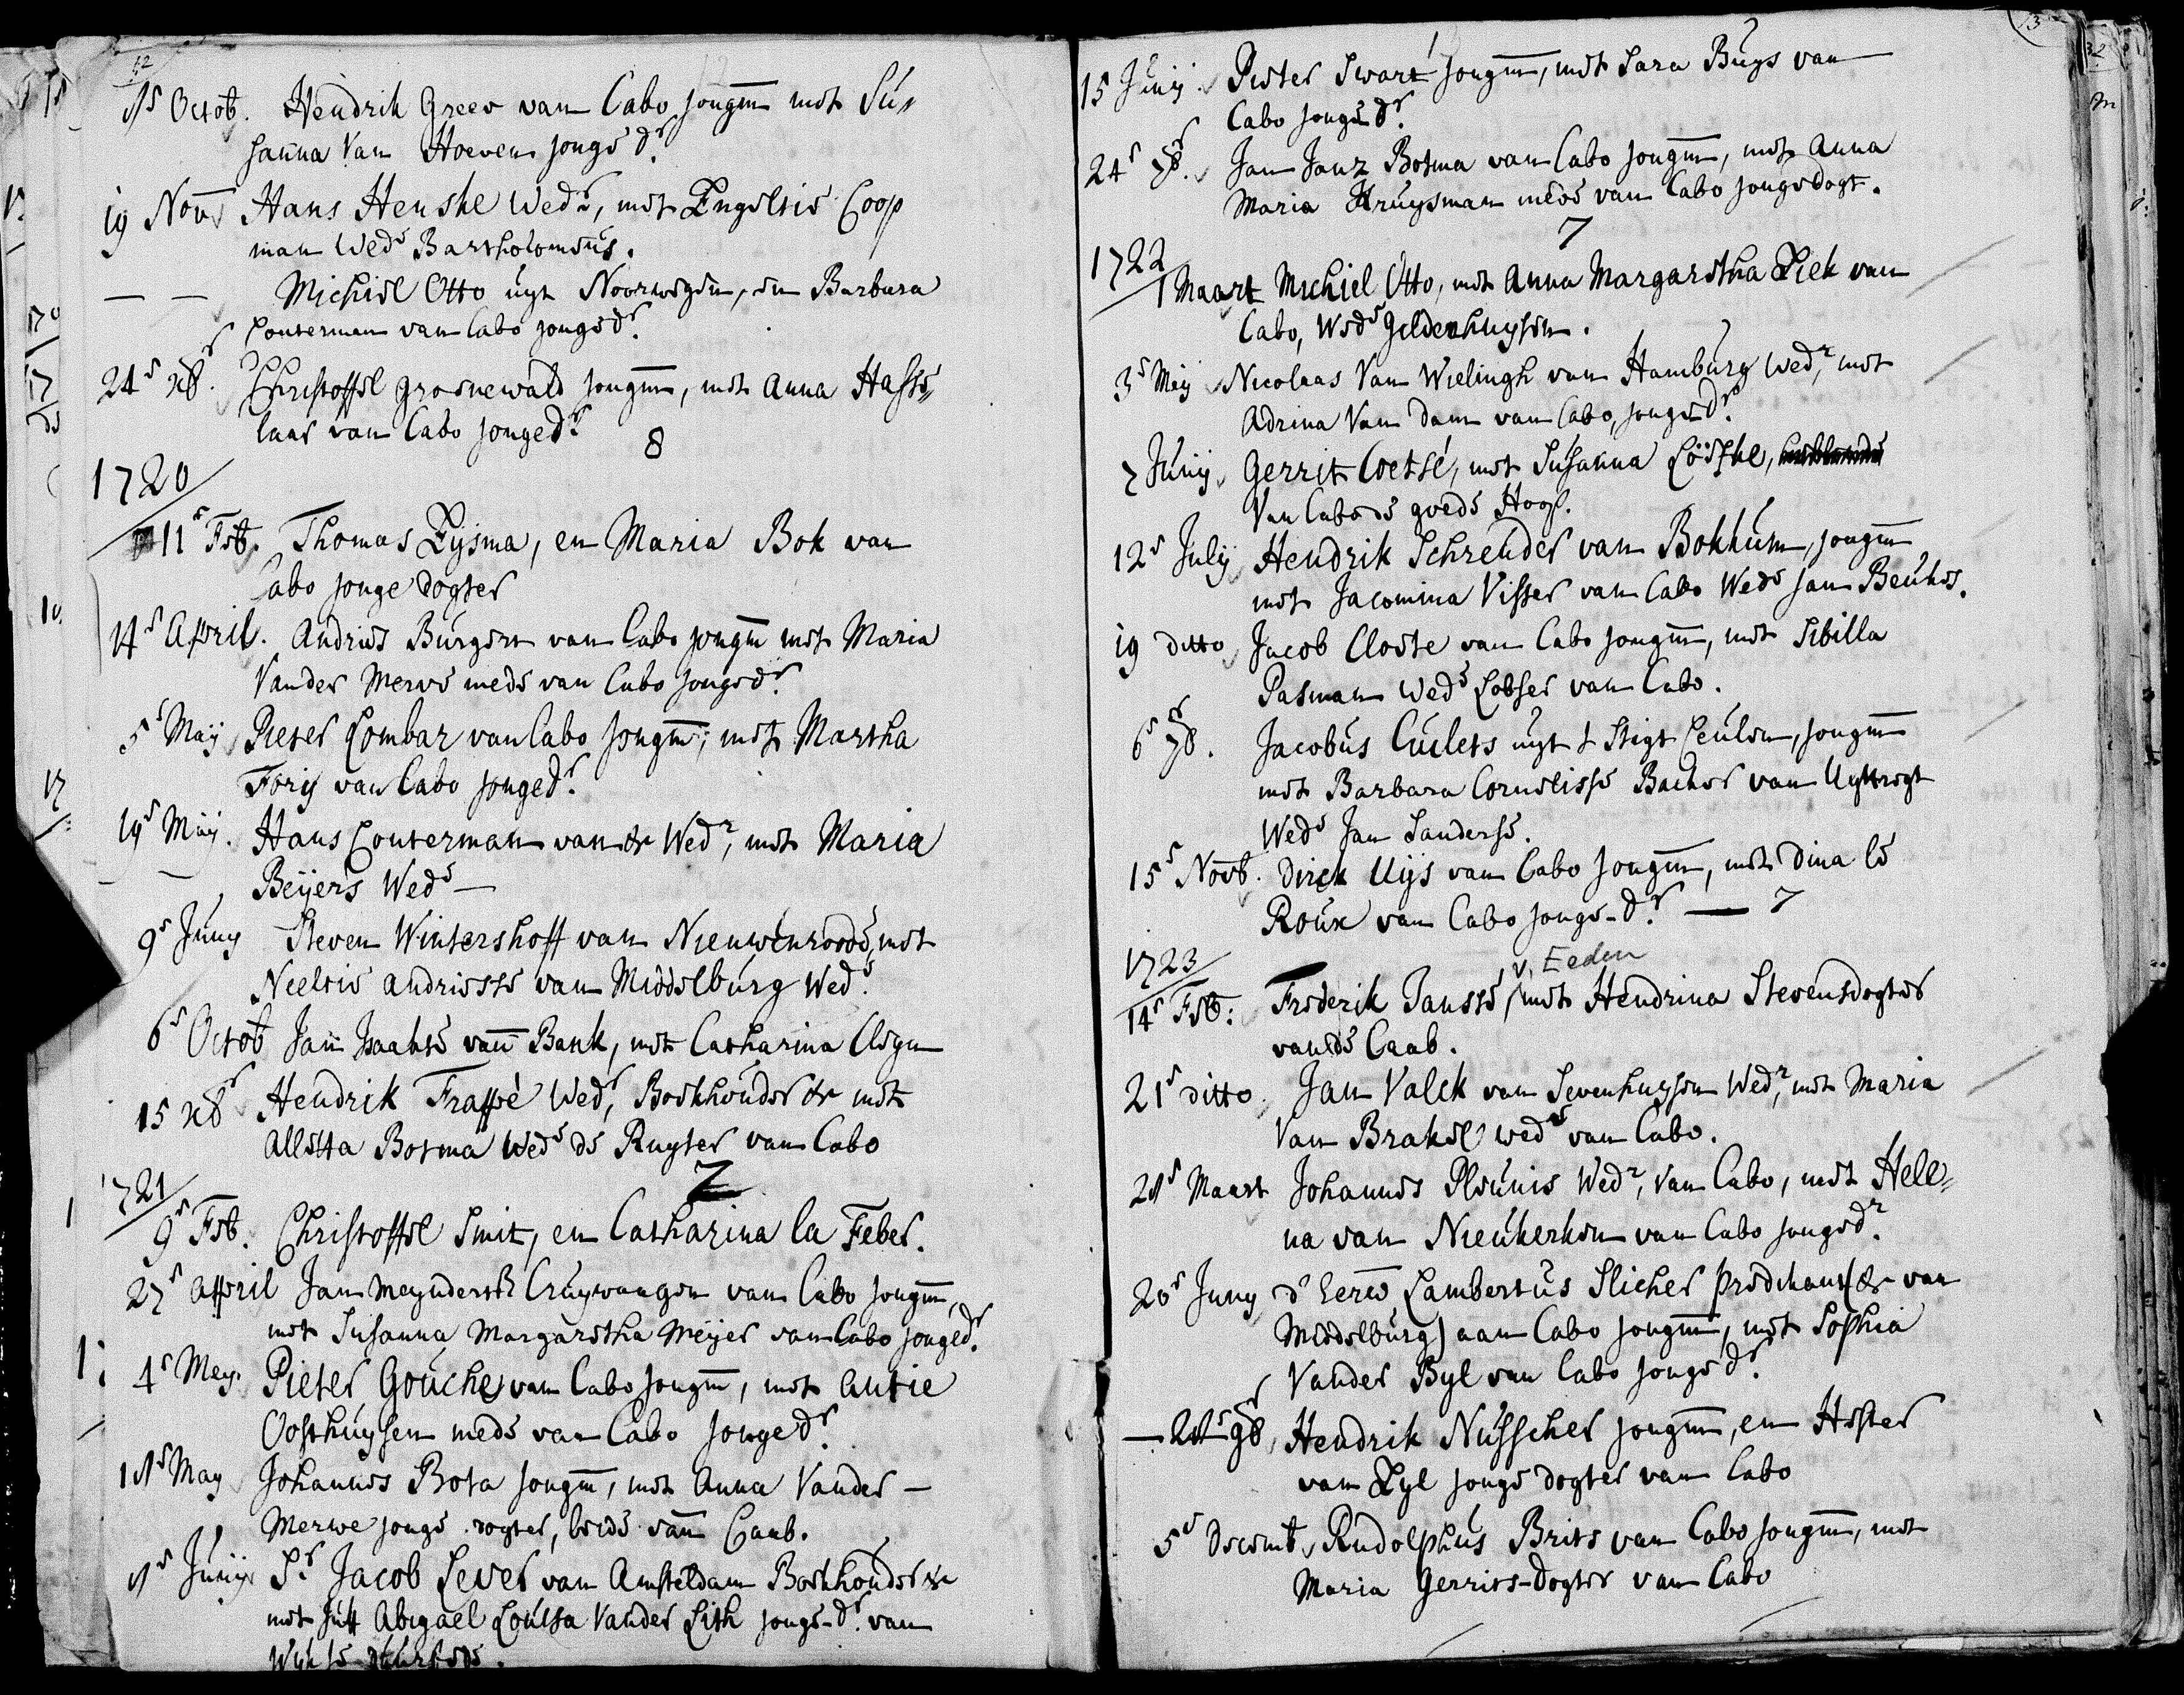 12
8e Octob. Hendrik Greev van Cabo jongm met Su,
sanna Van Hoeven jonge dr.
19 Nov Hans Henske Wedr, met Engeltie Coop
man Wede Bartholomeus.
— — Michiel Otto uyt Noorwegen, en Barbara
Couterman van Cabo jonge dr.
24e xbr. Christoffel Groenewald jongm, met Anna Hasse,,
laar van Cabo jonge dr.
8
1720
11e Feb. Thomas Zysma, en Maria Bok van
Cabo jonge dogter
14e April. Andries Burgert van Cabo jongm met Maria
Vander Merwe mede van Cabo jonge dr.
5e May Pieter Lombar van Cabo jongm, met Martha
Fory van Cabo jonge dr.
19e May. Hans Couterman van &c Wedr, met Maria
Beyers Wede —
9e Juny Steven Wintershoff van Nieuwenroode, met
Neeltie Andriesse van Middelburg Wede.
6e Octob Jan Isaakse van Bank, met Catharina Cleyn
15 xbr Hendrik Frappé Wedr, Boekhouder &c met
Alletta Botma Wede de Ruyter van Cabo
7
1721
9e Feb. Christoffel Smit, en Catharina la Feber.
27e April Jan Meyndertsz Cruywaagen van Cabo jongm,
met Susanna Margaretha Meyer van Cabo jonge dr.
4e Mey. Pieter Gouche van Cabo jongm, met Antie
Oosthuysen mede van Cabo jonge dr.
18e May Johannes Bota jongm, met Anna Vander —
Merwe jonge dogter, beide van Caab.
8e Juny Sr Jacob Lever van Amsteldam Boekhouder &c
met Juff Abigael Louisa Vander Lith jonge dr. van
13
15 Juny Pieter Swart jongm, met Sara Buys van
Cabo jonge dr.
24e 7br. Jan Janz Botma van Cabo jongm, met Anna
Maria Kruysman mede van Cabo jonge dogt.
7
1722
1 Maart Michiel Otto, met Anna Margaretha Ziek van
Cabo, Wede Geldenhuysen.
3e Mey Nicolaas Van Wielingh van Hamburg Wedr, met
Adrina Van Dam van Cabo, jonge dr.
7 Juny Gerrit Coetsé, met Susanna Löefke,
Van Cabo de goede Hoop.
12e July Hendrik Schreuder van Bokhum, jongm
met Jacomina Visser van Cabo Wede Jan Beukes.
19 ditto Jacob Cloete van Cabo jongm, met Sibilla
Pasman Wede Lobser van Cabo.
6e 7br. Jacobus Culets uyt t Stigt Ceulen, jongm
met Barbara Cornelisse Backer van Uyttregt
Wede Jan Janderse.
15e Novb. Dirck Uys van Cabo jongm, met Dina le
Roux van Cabo jonge dr. — 7
1723
v. Eeden
14e Feb. Frederik Jansse, met Hendrina Stevensdogter
van de Caab.
21e ditto Jan Valck van Sevenhuysen Wedr, met Maria
Van Brakel wede van Cabo.
28e Maart Johannes Pleunis Wedr, van Cabo, met Hele,
na van Nieukerken van Cabo jonge dr.
20e Juny d'Eerw Lambertus Slicher predikant (&c van
Middelburg) aan Cabo jongm, met Sophia
Vander Byl van Cabo jonge dr.
— 28e 9br Hendrik Nusscher jongm, en Hester
van Zyl jonge dogter van Cabo
5e Decemb Rudolphus Brits van Cabo jongm, met
Maria Gerrits-dogter van Cabo